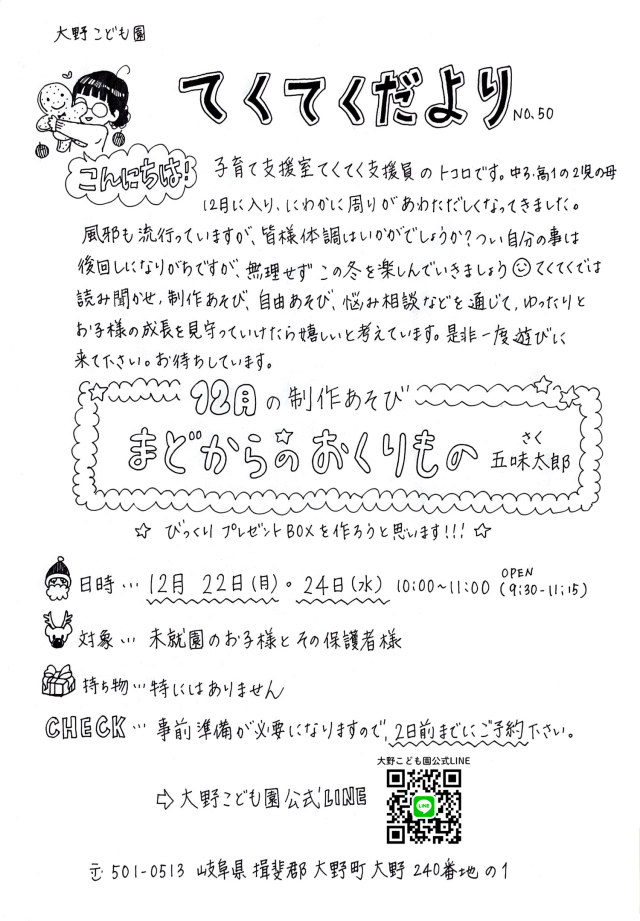 大野こども園
てくてくだより NO.50
こんにちは! 子育て支援室てくてく支援員のトコロです。中3・高1の2児の母
12月に入り、にわかに周りがあわただしくなってきました。
風邪も流行っていますが、皆様体調はいかがでしょうか?つい自分の事は
後回しになりがちですが、無理せずこの冬を楽しんでいきましょう てくてくでは
読み聞かせ、制作あそび、自由あそび、悩み相談などを通じて、ゆったりと
お子様の成長を見守っていけたら嬉しいと考えています。是非一度遊びに
来て下さい。お待ちしています。
12月の制作あそび
まどからのおくりもの さく 五味太郎
☆ びっくりプレゼントBOXを作ろうと思います!!! ☆
日時… 12月 22日(月)。24日(水) 10:00~11:00 OPEN (9:30-11:15)
対象… 未就園のお子様とその保護者様
持ち物…特にはありません
CHECK… 事前準備が必要になりますので、2日前までにご予約下さい。
大野こども園公式LINE
⇨ 大野こども園公式LINE
LINE
〒501-0513 岐阜県揖斐郡大野町大野240番地の1